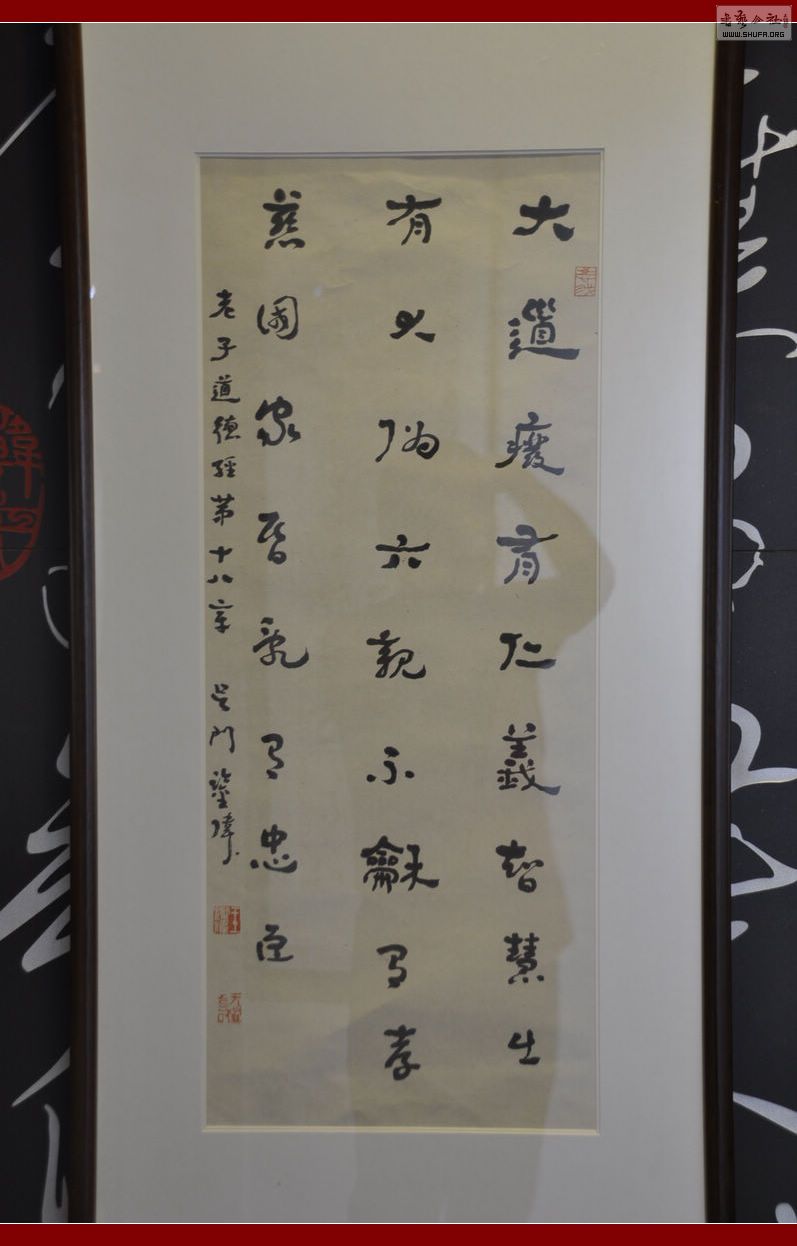 大道廢有仁義智慧生
有大偽六親不龢有孝
慈國家昏亂有忠臣
老子道德經第十八章 吳門 鑒瑋
WWW.SHUFA.ORG